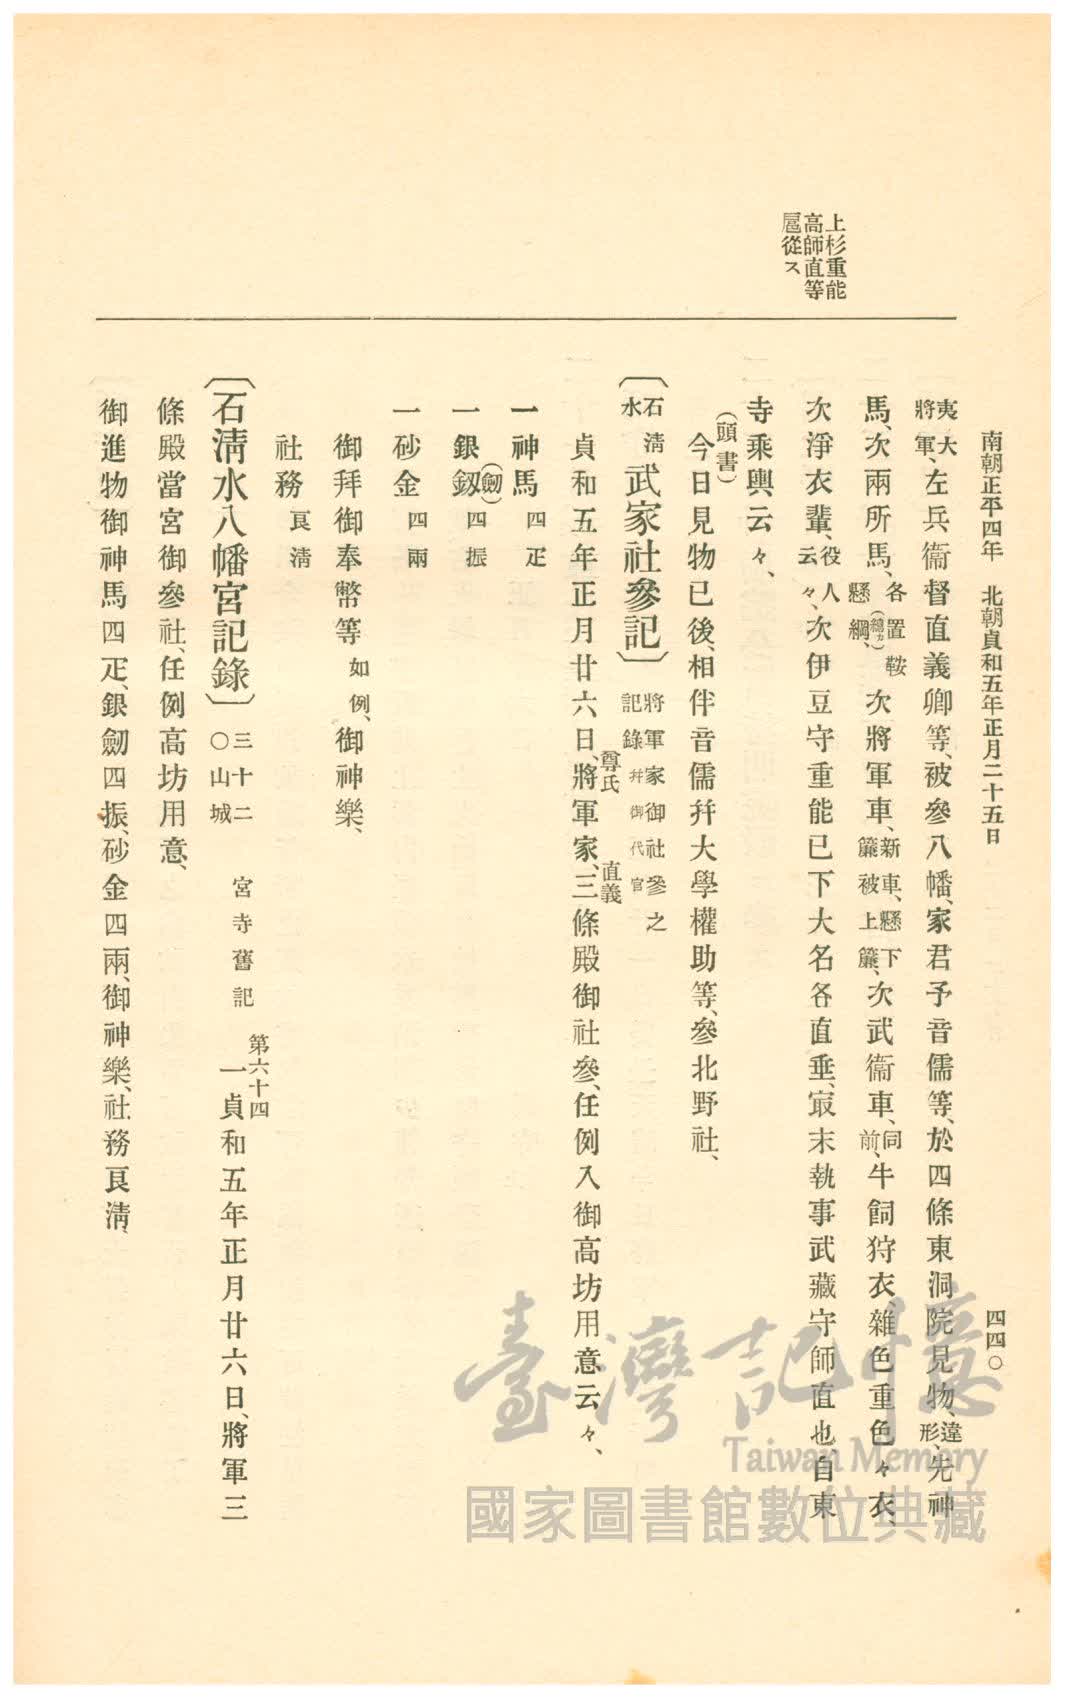 南朝正平四年　北朝貞和五年正月二十五日
四四〇
上杉重能
高師直等
扈從ス
夷大將軍、左兵衞督直義卿等、被參八幡、家君予音儒等、於四條東洞院見物、違形、先神
馬、次兩所馬、各置鞍懸綱、(總カ)次將軍車、新車、懸下簾被上簾、次武衞車、同前、牛飼狩衣、雜色重色々衣、
次淨衣輩、役人云々、次伊豆守重能已下大名各直垂、冣末執事武藏守師直也、自東
寺乘輿云々、
(頭書)
今日見物已後、相伴音儒幷大學權助等、參北野社、
〔石淸水武家社參記〕將軍家御社參之記錄幷御代官
貞和五年正月廿六日、將軍家、尊氏三條殿直義御社參、任例入御高坊用意云々、
一神馬四疋
一銀釼(劒)四振
一砂金四兩
御拜御奉幣等如例、御神樂、
社務良淸
〔石淸水八幡宮記錄〕三十二〇山城　宮寺舊記　第六十四　一貞和五年正月廿六日、將軍三
條殿當宮御參社、任例高坊用意、
御進物御神馬四疋、銀劒四振、砂金四兩、御神樂、社務良淸、
臺灣記憶
Taiwan Memory
國家圖書館數位典藏